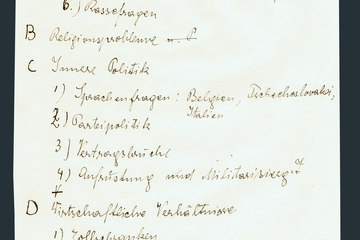 6.) Rassefragen
B Religionsprobleme u. P
C Innere Politik
1) Sprachenfragen: Belgien, Tschechoslovakei,
Italien
2) Parteipolitik
3) Vertragsbruch
4) Aufrüstung und
D Wirtschaftliche Verhältnisse
1) Zollschranken